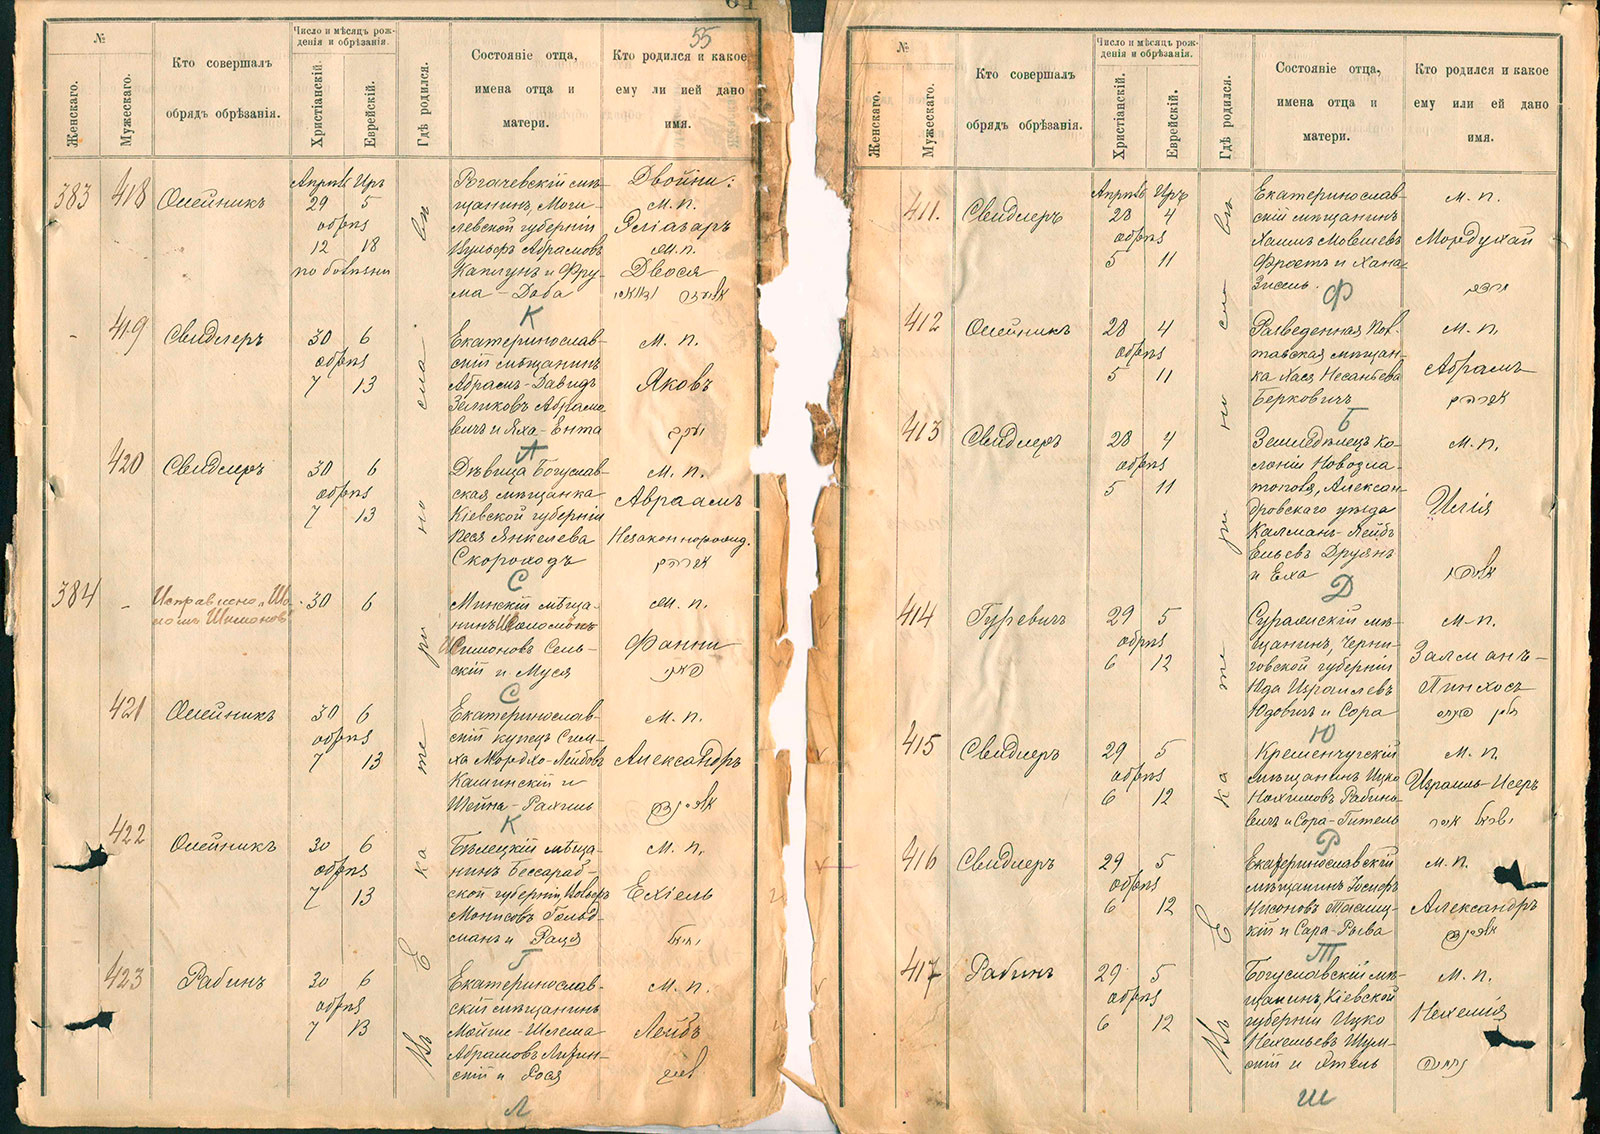 55
№
Женскаго.
Мужескаго.
Кто совершалъ
обрядъ обрѣзанія.
Число и мѣсяцъ рож-
денія и обрѣзанія.
Христіанскій.
Еврейскій.
Гдѣ родился.
Состояніе отца,
имена отца и
матери.
Кто родился и какое
ему ли ией дано
имя.
Въ Екатеринославѣ
383 418 Олейникъ
Апрель Иръ
29 5
обрѣз
12 18
по болѣзни
Рогачевскій мѣ-
щанинъ, Моги-
левской губерніи
Вульфъ Абрамовъ
Каплунъ и Фру-
ма - Доба
Двойни:
м. п.
Еліазаръ
Двося
К
419 Свидлеръ
30 6
обрѣз
7 13
Екатеринослав-
скій мѣщанинъ
Абрамъ-Давидъ
Зеликовъ Абрамо-
вичъ и Яха-Ента
м. п.
Яковъ
יעקב
А
420 Свидлеръ
30 6
обрѣз
7 13
Дѣвица Богуслав-
ская мѣщанка
Кіевской губерніи
Песя Янкелева
Скороходъ
м. п.
Авраамъ
Незаконнорожд.
אברהם
С
384 -
Исправлено „Шо-
ломъ Шимоновъ"
30 6
Минскій мѣща-
нинъ
Шимоновъ Сель-
скій и Муся
м. п.
Фанни
פאני
С
421 Олейникъ
30 6
обрѣз
7 13
Екатеринослав-
скій купецъ Сим-
ха Мордхо-Лейбовъ
Кашинскій и
Шейна-Рахиль
м. п.
Александръ
К
422 Олейникъ
30 6
обрѣз
7 13
Бѣлецкій мѣща-
нинъ Бессараб-
ской губерніи Вольфъ
Монисовъ Гольд-
манъ и Рация
м. п.
Ехіель
Г
423 Рабинъ
30 6
обрѣз
7 13
Екатеринослав-
скій мѣщанинъ
Мойше-Шлема
Абрамовъ
скій и Хося
м. п.
Лейбъ
לייב
Л
№
Женскаго.
Мужескаго.
Кто совершалъ
обрядъ обрѣзанія.
Число и мѣсяцъ рож-
денія и обрѣзанія.
Христіанскій.
Еврейскій.
Гдѣ родился.
Состояніе отца,
имена отца и
матери.
Кто родился и какое
ему или ей дано
имя.
Въ Екатеринославѣ
411. Свидлеръ
Апрель Иръ
28 4
обрѣз
5 11
Екатеринослав-
скій мѣщанинъ
Хаимъ Мовшевъ
Фростъ и Хана-
Зисель.
м. п.
Мордухай
מרדכי
Ф
412 Олейникъ
28 4
обрѣз
5 11
Разведенная Пол-
тавская мѣщан-
ка Хася Несаньева
Берковичъ
м. п.
Абрамъ
אברהם
Б
413 Свидлеръ
28 4
обрѣз
5 11
Земледѣлецъ ко-
лоніи Новозла-
тополя, Алексан-
дровскаго уѣзда
Калманъ-Лейбъ
Ельевъ Друянъ
и Елха
м. п.
Илія
אליהו
Д
414 Гуревичъ
29 5
обрѣз
6 12
Суражскій мѣ-
щанинъ, Черни-
говской губерніи
Юда Израилевъ
Юдовичъ и Сора
м. п.
Залманъ-
Пинхосъ
Ю
415 Свидлеръ
29 5
обрѣз
6 12
Кременчугскій
мѣщанинъ Ицко
Нохимовъ Рабино-
вичъ и Сора-Гитель
м. п.
Израиль-Исеръ
Р
416 Свидлеръ
29 5
обрѣз
6 12
Екатеринославскій
мѣщанинъ Іосифъ
Нисоновъ
кій и Сара-Рыва
м. п.
Александръ
Т
417 Рабинъ
29 5
обрѣз
6 12
Богуславскій мѣ-
щанинъ, Кіевской
губерніи Ицко
Нехемьевъ Шум-
скій и Этель
м. п.
Нехемія
נחמיה
Ш